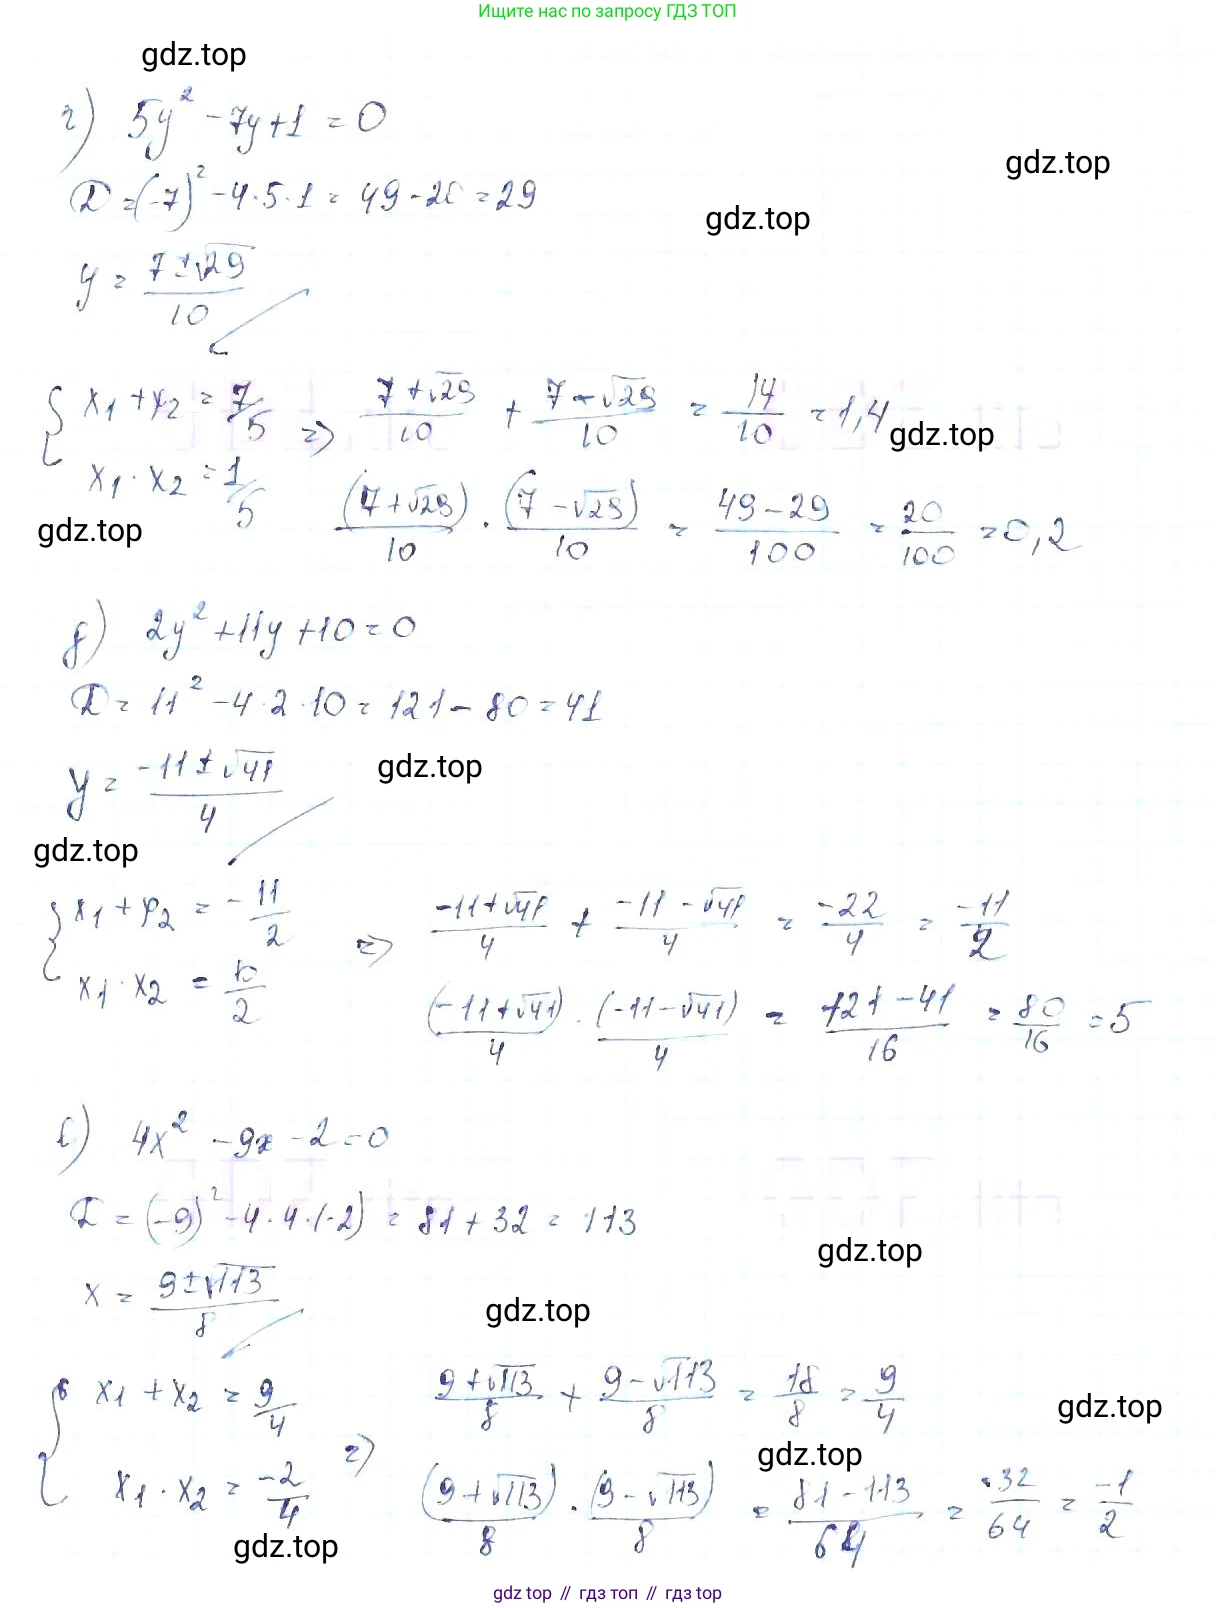 Ищите нас по запросу ГДЗ ТОП
gdz.top
г) 5y² - 7y + 1 = 0
gdz.top
D = (-7)² - 4·5·1 = 49 - 20 = 29
gdz.top
y = (7 ± √29)/10
{ x₁ + x₂ = 7/5 => (7 + √29)/10 + (7 - √29)/10 = 14/10 = 1,4
gdz.top
x₁ · x₂ = 1/5 (7 + √29)/10 · (7 - √29)/10 = (49 - 29)/100 = 20/100 = 0,2
gdz.top
д) 2y² + 11y + 10 = 0
D = 11² - 4·2·10 = 121 - 80 = 41
y = (-11 ± √41)/4
gdz.top
gdz.top
{ x₁ + x₂ = -11/2 => (-11 + √41)/4 + (-11 - √41)/4 = -22/4 = -11/2
x₁ · x₂ = 10/2 (-11 + √41)/4 · (-11 - √41)/4 = (121 - 41)/16 = 80/16 = 5
е) 4x² - 9x - 2 = 0
D = (-9)² - 4·4·(-2) = 81 + 32 = 113
gdz.top
x = (9 ± √113)/8
gdz.top
{ x₁ + x₂ = 9/4 => (9 + √113)/8 + (9 - √113)/8 = 18/8 = 9/4
gdz.top
gdz.top
x₁ · x₂ = -2/4 (9 + √113)/8 · (9 - √113)/8 = (81 - 113)/64 = -32/64 = -1/2
gdz.top
gdz top // гдз топ // gdz top